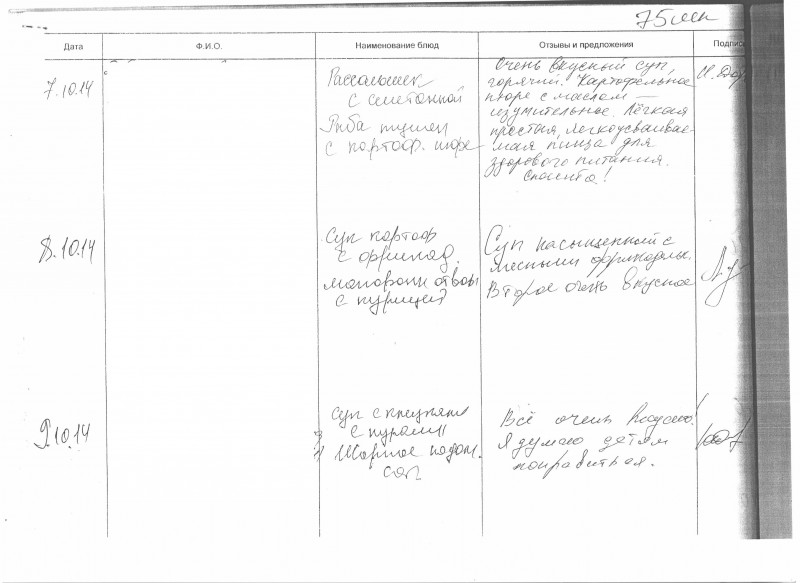 75
Дата Ф.И.О. Наименование блюд Отзывы и предложения Подпись
7.10.14
Рассольник
с сметанкой
Рыба тушен
с картоф. пюре
Очень вкусный суп,
горячий. Картофельное
пюре с маслом —
изумительное. Лёгкая
простая, легкоусваивае-
мая пища для
здорового питания.
Спасибо!
8.10.14
Суп картоф
с фрикад.
макароны отвар
с курицей
Суп насыщенный с
мясными фрикадельк.
Второе очень вкусное
9.10.14
Суп с клецками
с курами
Жаркое
сок
Всё очень вкусно.
Я думаю детям
понравиться.